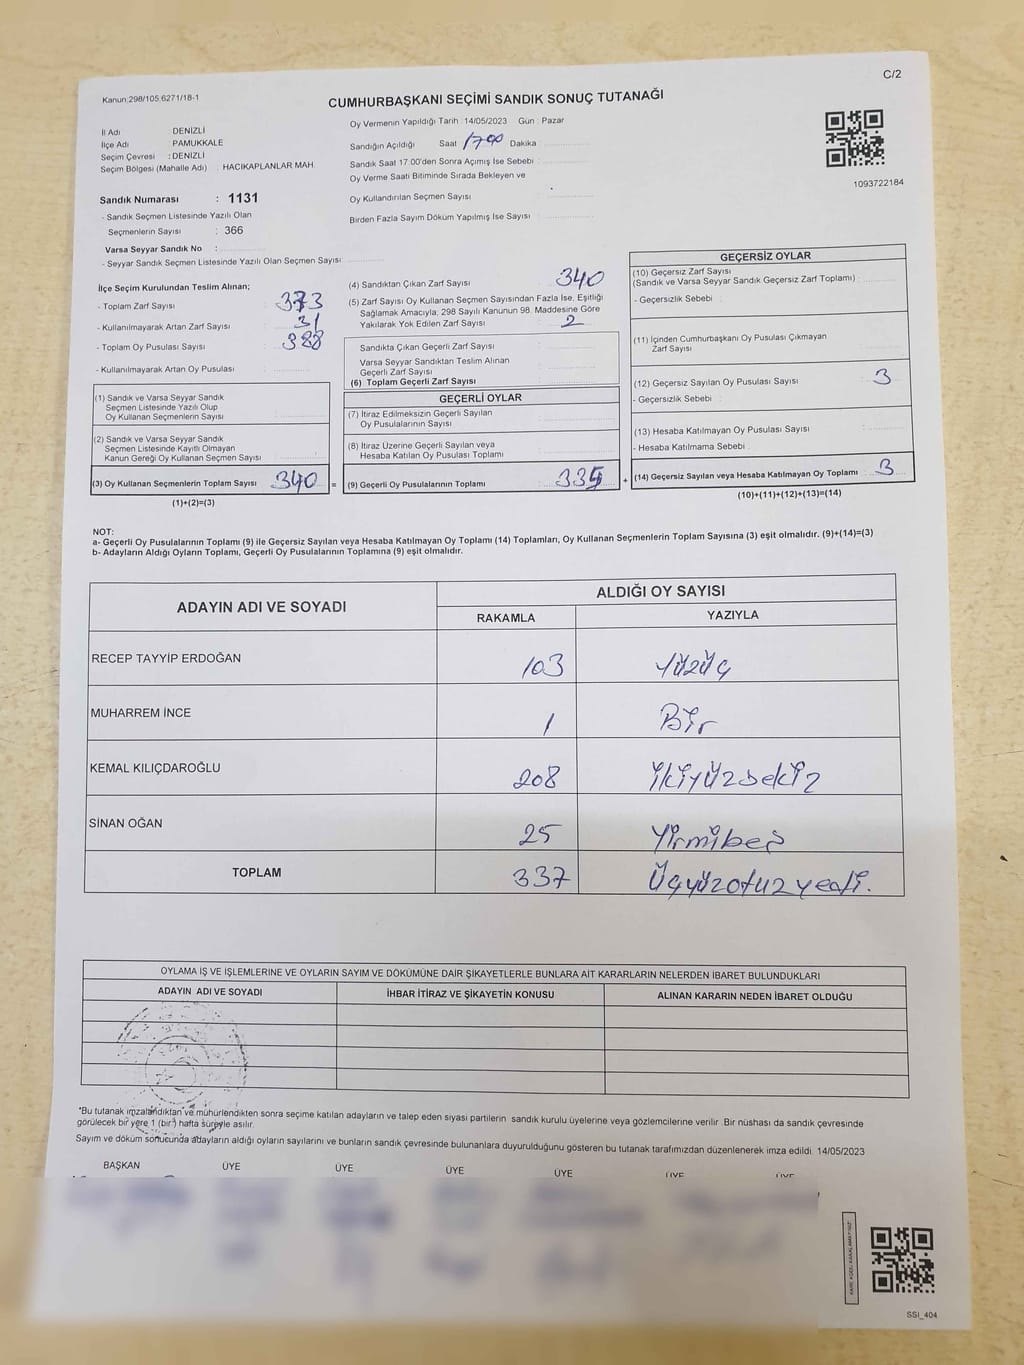 C/2
Kanun:298/105,6271/18-1
CUMHURBAŞKANI SEÇİMİ SANDIK SONUÇ TUTANAĞI
İl Adı DENİZLİ
İlçe Adı PAMUKKALE
Seçim Çevresi : DENİZLİ
Seçim Bölgesi (Mahalle Adı) : HACIKAPLANLAR MAH.
Sandık Numarası : 1131
- Sandık Seçmen Listesinde Yazılı Olan
Seçmenlerin Sayısı : 366
Varsa Seyyar Sandık No :
- Seyyar Sandık Seçmen Listesinde Yazılı Olan Seçmen Sayısı
Oy Vermenin Yapıldığı Tarih :14/05/2023 Gün : Pazar
Sandığın Açıldığı Saat 1700 Dakika
Sandık Saat 17.00'den Sonra Açımış İse Sebebi :
Oy Verme Saati Bitiminde Sırada Bekleyen ve
Oy Kullandırılan Seçmen Sayısı :
Birden Fazla Sayım Döküm Yapılmış İse Sayısı :
1093722184
İlçe Seçim Kurulundan Teslim Alınan;
- Toplam Zarf Sayısı : 373
- Kullanılmayarak Artan Zarf Sayısı : 31
- Toplam Oy Pusulası Sayısı : 388
- Kullanılmayarak Artan Oy Pusulası :
(1) Sandık ve Varsa Seyyar Sandık
Seçmen Listesinde Yazılı Olup
Oy Kullanan Seçmenlerin Sayısı :
(2) Sandık ve Varsa Seyyar Sandık
Seçmen Listesinde Kayıtlı Olmayan
Kanun Gereği Oy Kullanan Seçmen Sayısı :
(3) Oy Kullanan Seçmenlerin Toplam Sayısı : 340 =
(1)+(2)=(3)
(4) Sandıktan Çıkan Zarf Sayısı : 340
(5) Zarf Sayısı Oy Kullanan Seçmen Sayısından Fazla İse, Eşitliği
Sağlamak Amacıyla, 298 Sayılı Kanunun 98. Maddesine Göre
Yakılarak Yok Edilen Zarf Sayısı : 2
Sandıkta Çıkan Geçerli Zarf Sayısı :
Varsa Seyyar Sandıktan Teslim Alınan
Geçerli Zarf Sayısı :
(6) Toplam Geçerli Zarf Sayısı :
GEÇERLİ OYLAR
(7) İtiraz Edilmeksizin Geçerli Sayılan
Oy Pusulalarının Sayısı :
(8) İtiraz Üzerine Geçerli Sayılan veya
Hesaba Katılan Oy Pusulası Toplamı :
(9) Geçerli Oy Pusulalarının Toplamı : +
GEÇERSİZ OYLAR
(10) Geçersiz Zarf Sayısı
(Sandık ve Varsa Seyyar Sandık Geçersiz Zarf Toplamı) :
- Geçersizlik Sebebi :
(11) İçinden Cumhurbaşkanı Oy Pusulası Çıkmayan
Zarf Sayısı :
(12) Geçersiz Sayılan Oy Pusulası Sayısı : 3
- Geçersizlik Sebebi :
(13) Hesaba Katılmayan Oy Pusulası Sayısı :
- Hesaba Katılmama Sebebi :
(14) Geçersiz Sayılan veya Hesaba Katılmayan Oy Toplamı : 3
(10)+(11)+(12)+(13)=(14)
NOT:
a- Geçerli Oy Pusulalarının Toplamı (9) ile Geçersiz Sayılan veya Hesaba Katılmayan Oy Toplamı (14) Toplamları, Oy Kullanan Seçmenlerin Toplam Sayısına (3) eşit olmalıdır. (9)+(14)=(3)
b- Adayların Aldığı Oyların Toplamı, Geçerli Oy Pusulalarının Toplamına (9) eşit olmalıdır.
ADAYIN ADI VE SOYADI ALDIĞI OY SAYISI
RAKAMLA YAZIYLA
RECEP TAYYİP ERDOĞAN 103 Yüzüç
MUHARREM İNCE 1 Bir
KEMAL KILIÇDAROĞLU 208 İkiyüzsekiz
SİNAN OĞAN 25 Yirmibeş
TOPLAM 337 Üçyüzotuzyedi.
OYLAMA İŞ VE İŞLEMLERİNE VE OYLARIN SAYIM VE DÖKÜMÜNE DAİR ŞİKAYETLERLE BUNLARA AİT KARARLARIN NELERDEN İBARET BULUNDUKLARI
ADAYIN ADI VE SOYADI İHBAR İTİRAZ VE ŞİKAYETİN KONUSU ALINAN KARARIN NEDEN İBARET OLDUĞU
*Bu tutanak imzalandıktan ve mühürlendikten sonra seçime katılan adayların ve talep eden siyasi partilerin sandık kurulu üyelerine veya gözlemcilerine verilir. Bir nüshası da sandık çevresinde
görülecek bir yere 1 (bir) hafta süreyle asılır.
Sayım ve döküm sonucunda adayların aldığı oyların sayılarını ve bunların sandık çevresinde bulunanlara duyurulduğunu gösteren bu tutanak tarafımızdan düzenlenerek imza edildi. 14/05/2023
BAŞKAN ÜYE ÜYE ÜYE ÜYE ÜYE ÜYE
SSI_404